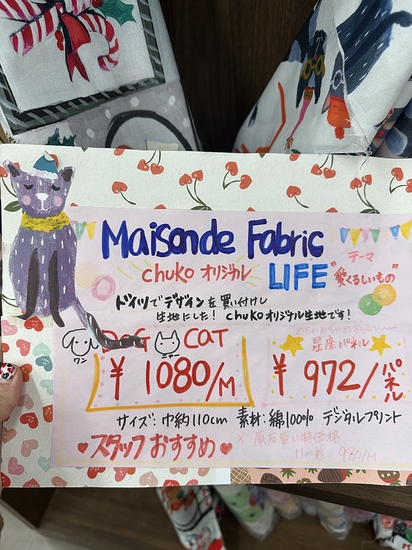 Maison de Fabric
chuko オリジナル LIFE
テーマ
"愛くるしいもの"
ドイツでデザインを買い付けし
生地にした! chukoオリジナル生地です!
DOG CAT
ワン ニャー
¥1080/M
星座パネル
¥972/パネル
サイズ:巾約110cm 素材:綿100% デジタルプリント
♥スタッフおすすめ♥